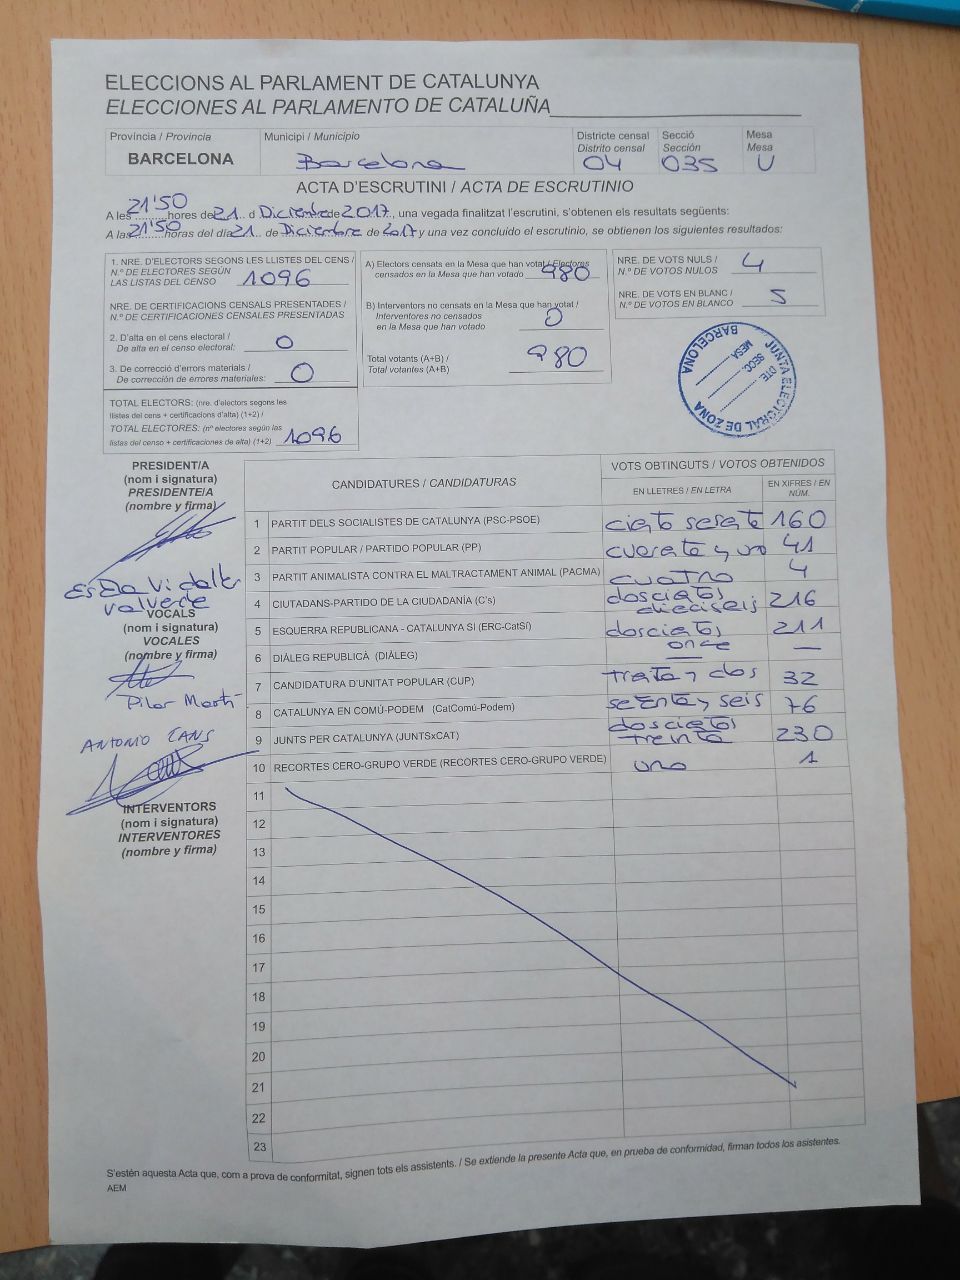 ELECCIONS AL PARLAMENT DE CATALUNYA
ELECCIONES AL PARLAMENTO DE CATALUÑA
Província / Provincia
BARCELONA
Municipi / Municipio
Barcelona
Districte censal
Distrito censal
04
Secció
Sección
035
Mesa
Mesa
U
ACTA D'ESCRUTINI / ACTA DE ESCRUTINIO
A les 21'50 hores de 21 d Diciembre de 2017, una vegada finalitzat l'escrutini, s'obtenen els resultats següents:
A las 21'50 horas del día 21 de Diciembre de 2017 y una vez concluido el escrutinio, se obtienen los siguientes resultados:
1. NRE. D'ELECTORS SEGONS LES LLISTES DEL CENS /
N.º DE ELECTORES SEGÚN
LAS LISTAS DEL CENSO 1096
NRE. DE CERTIFICACIONS CENSALS PRESENTADES /
N.º DE CERTIFICACIONES CENSALES PRESENTADAS
2. D'alta en el cens electoral /
De alta en el censo electoral: 0
3. De correcció d'errors materials /
De corrección de errores materiales: 0
TOTAL ELECTORS: (nre. d'electors segons les
llistes del cens + certificacions d'alta) (1+2) /
TOTAL ELECTORES: (nº electores según las
listas del censo + certificaciones de alta) (1+2) 1096
A) Electors censats en la Mesa que han votat / Electores
censados en la Mesa que han votado 980
B) Interventors no censats en la Mesa que han votat /
Interventores no censados
en la Mesa que han votado 0
Total votants (A+B) /
Total votantes (A+B) 980
NRE. DE VOTS NULS /
N.º DE VOTOS NULOS 4
NRE. DE VOTS EN BLANC /
N.º DE VOTOS EN BLANCO 5
JUNTA ELECTORAL DE ZONA
BARCELONA
DTE.
SECC.
MESA
PRESIDENT/A
(nom i signatura)
PRESIDENTE/A
(nombre y firma)
Valverde
VOCALS
(nom i signatura)
VOCALES
(nombre y firma)
Pilar Martí
ANTONIO CANS
INTERVENTORS
(nom i signatura)
INTERVENTORES
(nombre y firma)
CANDIDATURES / CANDIDATURAS
VOTS OBTINGUTS / VOTOS OBTENIDOS
EN LLETRES / EN LETRA
EN XIFRES / EN NÚM.
1 PARTIT DELS SOCIALISTES DE CATALUNYA (PSC-PSOE) ciento sesenta 160
2 PARTIT POPULAR / PARTIDO POPULAR (PP) cuarenta y uno 41
3 PARTIT ANIMALISTA CONTRA EL MALTRACTAMENT ANIMAL (PACMA) cuatro 4
4 CIUTADANS-PARTIDO DE LA CIUDADANÍA (C's) doscientos dieciseis 216
5 ESQUERRA REPUBLICANA - CATALUNYA SÍ (ERC-CatSí) doscientos once 211
6 DIÀLEG REPUBLICÀ (DIÀLEG) — —
7 CANDIDATURA D'UNITAT POPULAR (CUP) treinta y dos 32
8 CATALUNYA EN COMÚ-PODEM (CatComú-Podem) setenta y seis 76
9 JUNTS PER CATALUNYA (JUNTSxCAT) doscientos treinta 230
10 RECORTES CERO-GRUPO VERDE (RECORTES CERO-GRUPO VERDE) uno 1
11
12
13
14
15
16
17
18
19
20
21
22
23
S'estén aquesta Acta que, com a prova de conformitat, signen tots els assistents. / Se extiende la presente Acta que, en prueba de conformidad, firman todos los asistentes.
AEM